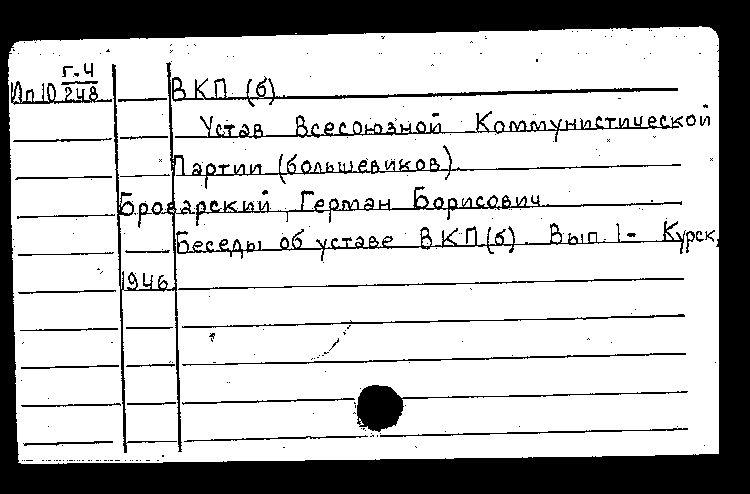 г-4
Ил10 248
ВКП (б).
Устав Всесоюзной Коммунистической
Партии (большевиков).
Броварский, Герман Борисович.
Беседы об уставе ВКП(б). Вып. 1- Курск,
1946